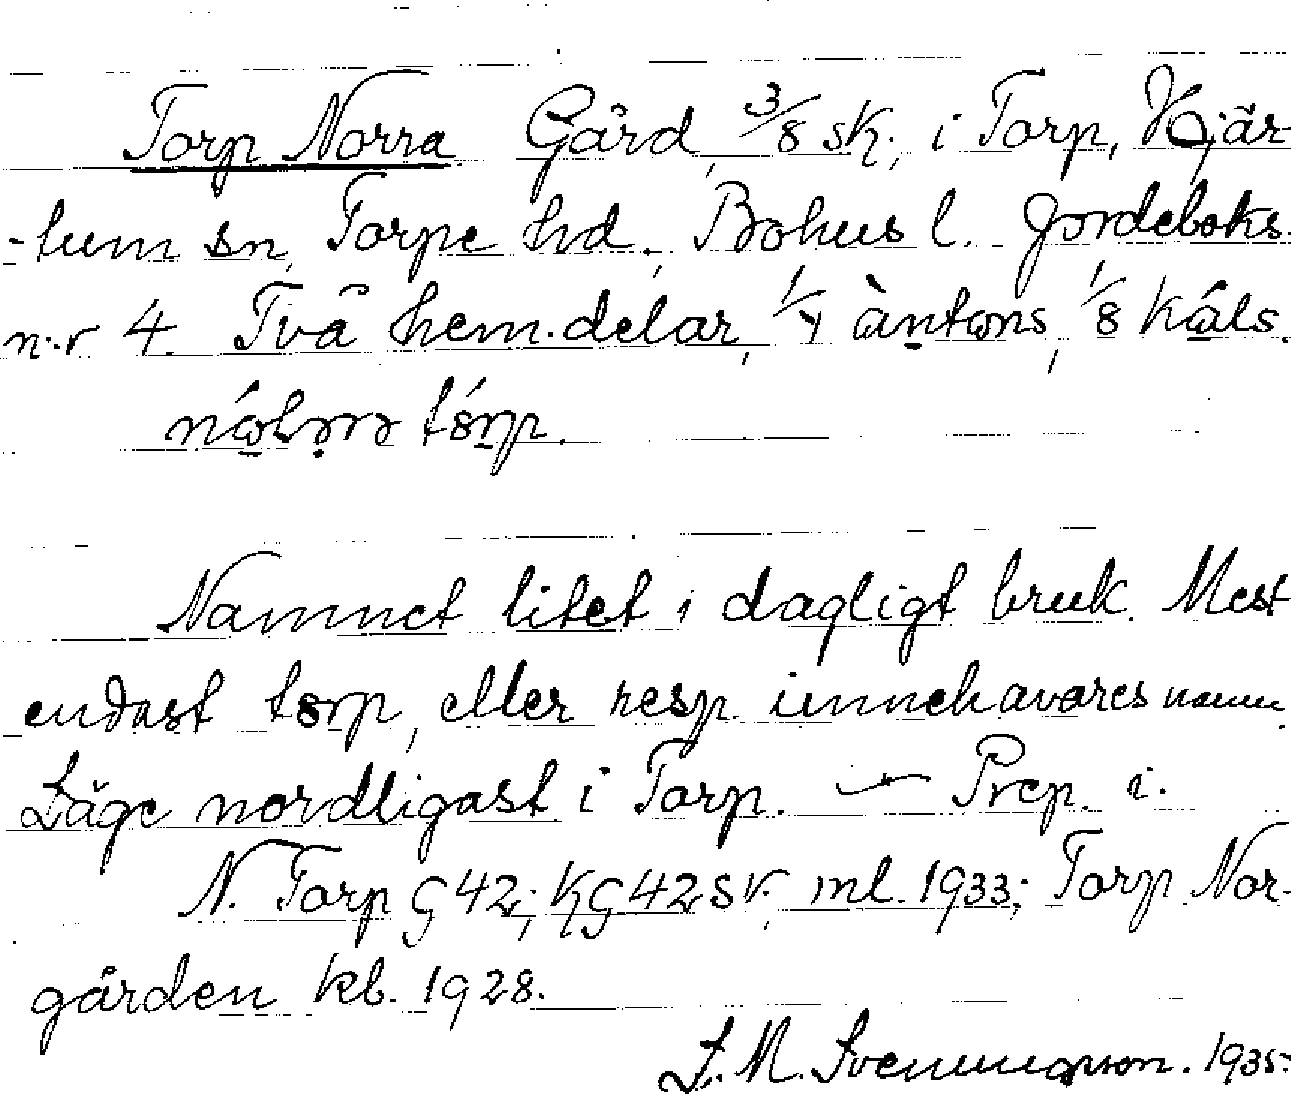 Torp Norra Gård, 3/8 sk., i Torp, Hjär-
-tum sn, Torpe hd., Bohus l. Jordeboks-
n:r 4. Två hem.delar, 1/4 àntɷns, 1/8 kɷ́ls.
Namnet litet i dagligt bruk. Mest
endast torp, eller resp. innehavares namn.
Läge nordligast i Torp. — Prep. i.
N. Torp G42; KG42SV, ml. 1933; Torp Nor-
gården kb. 1928.
J. M. Svenningson. 1935.